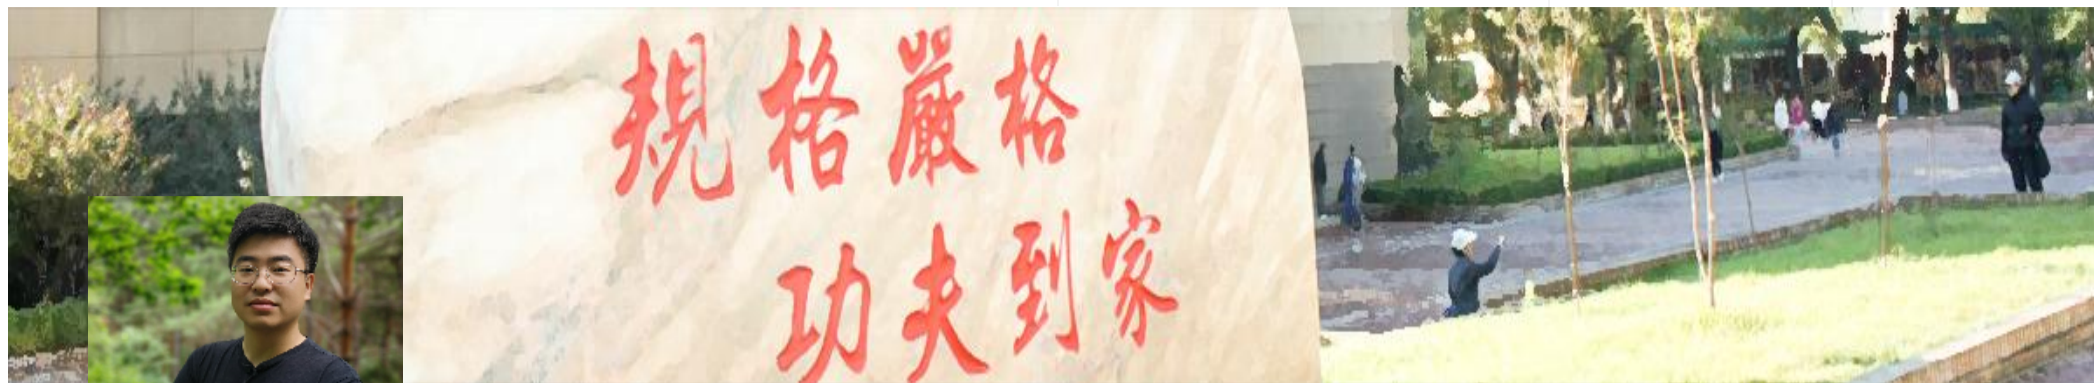 規格嚴格
功夫到家